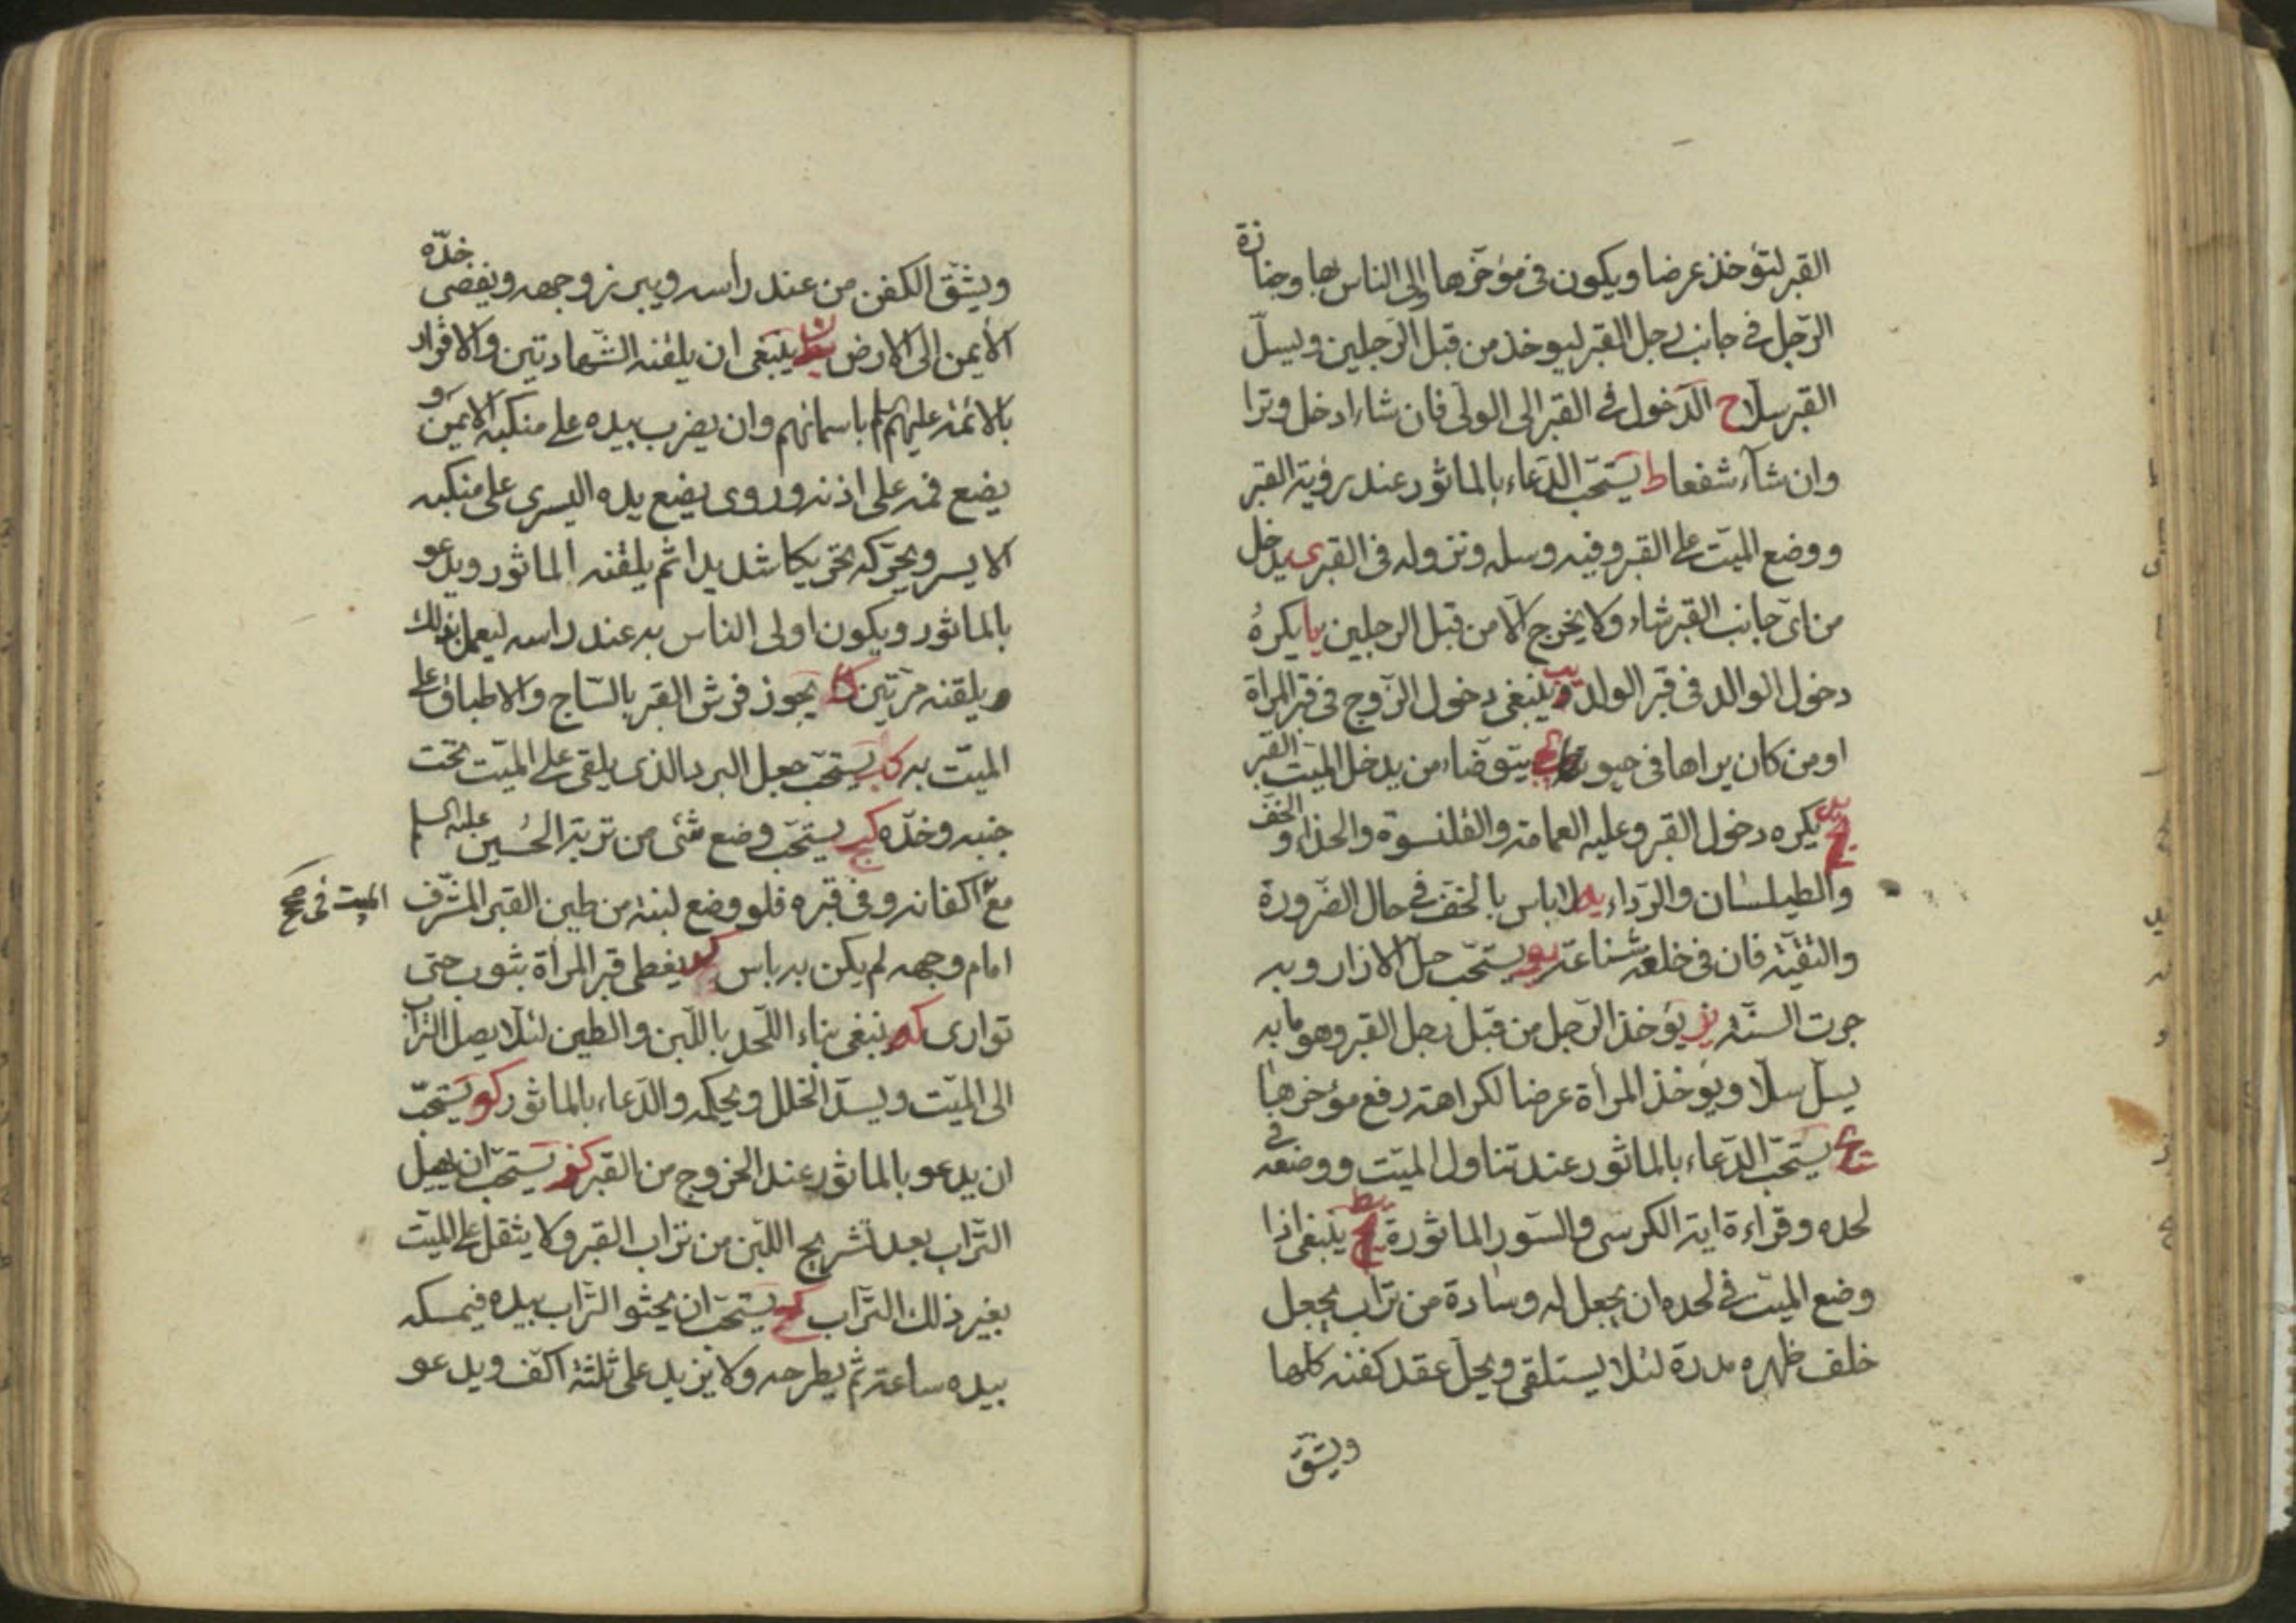 القبر لتؤخذ عرضا ويكون في مؤخرها اولى الناس بها وجنازة
الرّجل في جانب رجل القبر ليوخذ من قبل الرّجلين ويسلّ
القبر سلّا ح الدّخول في القبر الى الولى فان شاء ادخل وترا
وان شاء شفعا ط يستحبّ الدّعاء بالماثور عند رؤية القبر
ووضع الميّت على القبر وفيه وسله ونزوله في القبر ى يدخل
من اىّ جانب القبر شاء ولا يخرج الّا من قبل الرجلين يا يكره
دخول الوالد في قبر الولد يب وينبغى دخول الزّوج في قبر المرأة
او من كان يراها في حيوتها يج يتوضّاء من يدخل الميت القبر
يد يكره دخول القبر وعليه العمامة والقلنسوة والحذاء والخفّ
والطيلسان والرّداء يه لاباس بالخفّ في حال الضّرورة
والتقيّة فان في خلعه شناعة يو يستحبّ حلّ الازار وبه
جرت السنّة يز يؤخذ الرّجل من قبل رجل القبر وهو ما به
يسلّ سلّا ويؤخذ المرأة عرضا لكراهته رفع مؤخرها
يح يستحبّ الدّعاء بالماثور عند تناول الميّت ووضعه في
لحده وقراءة اية الكرسى والسّور الماثورة يط ينبغى اذا
وضع الميّت في لحده ان يجعل له وسادة من تراب يجعل
خلف ظهره مدرة لئلا يستلقى ويحلّ عقد كفنه كلها
ويشقّ
ويشقّ الكفن من عند رأسه ويبرز وجهه ويفضى خدّه
الأيمن الى الارض ينبغى ان يلقنه الشّهادتين والاقرار
بالائمّة عليهم السلم باسمائهم وان يضرب بيده على منكبه الايمن و
يضع فمه على اذنه وروى يضع يده اليسرى على منكبه
الايسر ويحرّكه تحريكا شديدا ثم يلقنه الماثور ويدعو
بالماثور ويكون اولى الناس به عند راسه ليعمل بذلك
ويلقنه مرّتين كا يجوز فرش القبر بالسّاج والاطباق على
الميّت به كب يستحبّ جعل البرد الذى يلقى على الميّت تحت
جنبه وخدّه كج يستحبّ وضع شئ من تربة الحُسين عليه السلم
مع اكفانه وفى قبره فلو وضع لبنة من طين القبر المشرّف
الميت في صح
امام وجهه لم يكن به باس كد يغطى قبر المرأة بثوب حتى
توارى كه ينبغى بناء اللّحد باللّبن والطين لئلا يصل التراب
الى الميّت ويسدّ الخلل ويحكمه والدّعاء بالماثور كو يستحبّ
ان يدعو بالماثور عند الخروج من القبر كز يستحبّ ان يهيل
التّراب بعد تشريج اللّبن من تراب القبر ولا يثقل على الميّت
بغير ذلك التّراب كح يستحبّ ان يحثو التّراب بيده فيمسكه
بيده ساعة ثم يطرحه ولا يزيد على ثلثة اكفّ ويدعو